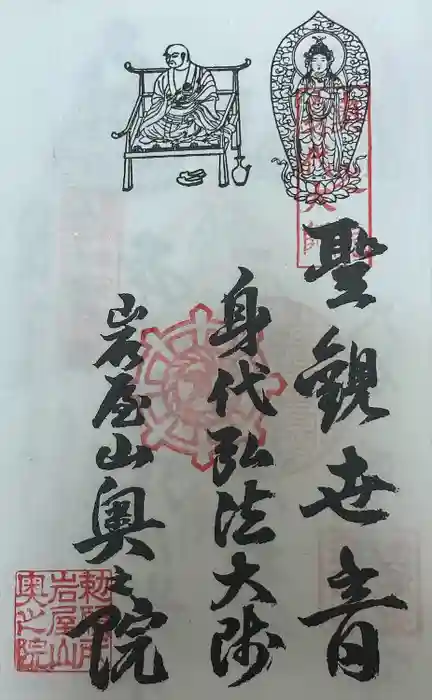 聖観世音
身代弘法大师
岩屋山奥之院
勅願所
岩屋山
奥之院